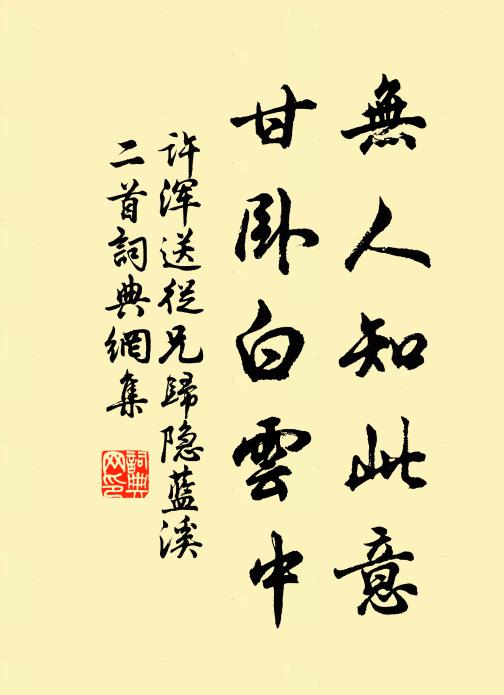 無人知此意
甘臥白雲中
许渾送從兄歸隐藍溪
二首詞典網集
詞典
网印